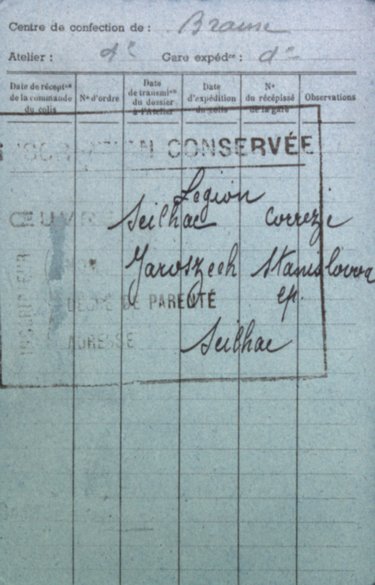 Centre de confection de : Braisne
Atelier : do Gare expédre : do
Date de récepton de la commande du colis | No d'ordre | Date de transmion du dossier à l'Atelier | Date d'expédition du colis | No du récépissé de la gare | Observations
INSCRIPTION CONSERVÉE
Légion
ŒUVRE Seilhac Corrèze
NOM Jaroszech Stanislowa
DEGRÉ DE PARENTÉ ép.
ADRESSE Seilhac